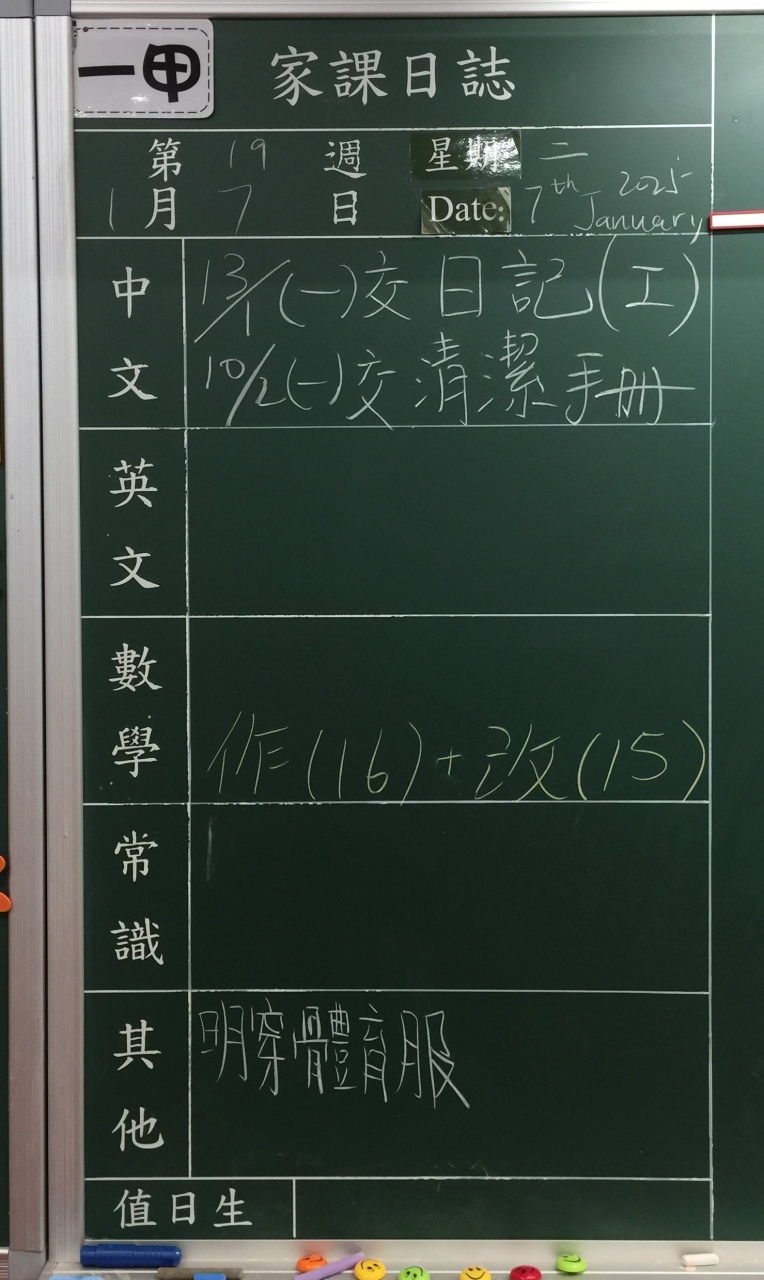 一甲
家課日誌
第 19 週 星期 二
1月 7 日 Date: 7th January 2025
中文
13/1(一)交日記(工)
10/2(一)交清潔手册
英文
數學
作(16)+改(15)
常識
其他
明穿體育服
值日生